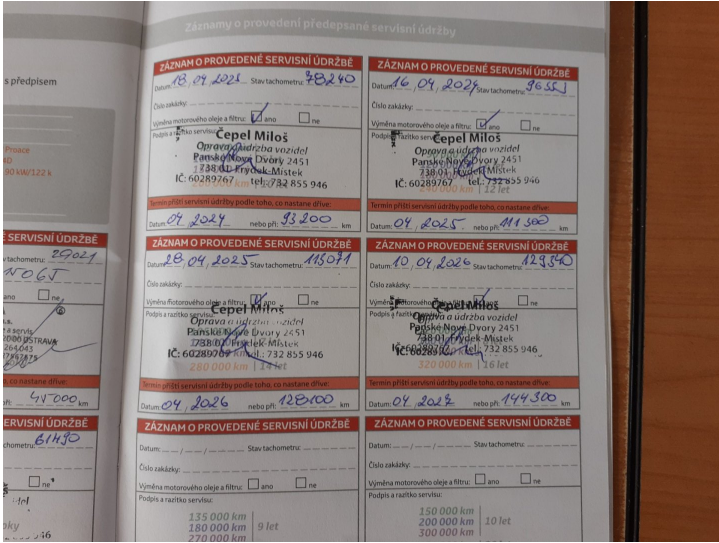 Záznamy o provedení předepsané servisní údržby
s předpisem
Proace
90 kW/122 k
SERVISNÍ ÚDRŽBĚ
tachometru: 29021
ano ne
servis
OSTRAVA
co nastane dříve:
45000 km
SERVISNÍ ÚDRŽBĚ
61490
ano ne
ZÁZNAM O PROVEDENÉ SERVISNÍ ÚDRŽBĚ
Datum: 18.04.2023 Stav tachometru: 78240
Číslo zakázky:
Výměna motorového oleje a filtru: ano ne
Podpis a razítko servisu:
Čepel Miloš
Oprava a údržba vozidel
Panské Nové Dvory 2451
738 01 Frýdek-Místek
IČ: 60289767 tel.: 732 855 946
Termín příští servisní údržby podle toho, co nastane dříve:
Datum: 04.2024 nebo při: 93200 km
ZÁZNAM O PROVEDENÉ SERVISNÍ ÚDRŽBĚ
Datum: 16.04.2024 Stav tachometru:
Číslo zakázky:
Výměna motorového oleje a filtru: ano ne
Podpis a razítko servisu:
Čepel Miloš
Oprava a údržba vozidel
Panské Nové Dvory 2451
738 01 Frýdek-Místek
IČ: 60289767 tel.: 732 855 946
240 000 km 12 let
Termín příští servisní údržby podle toho, co nastane dříve:
Datum: 04.2025 nebo při: 111500 km
ZÁZNAM O PROVEDENÉ SERVISNÍ ÚDRŽBĚ
Datum: 28.04.2025 Stav tachometru: 113071
Číslo zakázky:
Výměna motorového oleje a filtru: ano ne
Podpis a razítko servisu:
Čepel Miloš
Oprava a údržba vozidel
Panské Nové Dvory 2451
738 01 Frýdek-Místek
IČ: 60289767 tel.: 732 855 946
280 000 km 14 let
Termín příští servisní údržby podle toho, co nastane dříve:
Datum: 04.2026 nebo při: 128100 km
ZÁZNAM O PROVEDENÉ SERVISNÍ ÚDRŽBĚ
Datum: 10.04.2026 Stav tachometru: 129340
Číslo zakázky:
Výměna motorového oleje a filtru: ne
Podpis a razítko servisu:
Čepel Miloš
Oprava a údržba vozidel
Panské Nové Dvory 2451
738 01 Frýdek-Místek
IČ: 60289767 tel.: 732 855 946
320 000 km 16 let
Termín příští servisní údržby podle toho, co nastane dříve:
Datum: 04.2027 nebo při: 144300 km
ZÁZNAM O PROVEDENÉ SERVISNÍ ÚDRŽBĚ
Datum: / / Stav tachometru:
Číslo zakázky:
Výměna motorového oleje a filtru: ano ne
Podpis a razítko servisu:
135 000 km
180 000 km 9 let
270 000 km
ZÁZNAM O PROVEDENÉ SERVISNÍ ÚDRŽBĚ
Datum: / / Stav tachometru:
Číslo zakázky:
Výměna motorového oleje a filtru: ano ne
Podpis a razítko servisu:
150 000 km
200 000 km 10 let
300 000 km